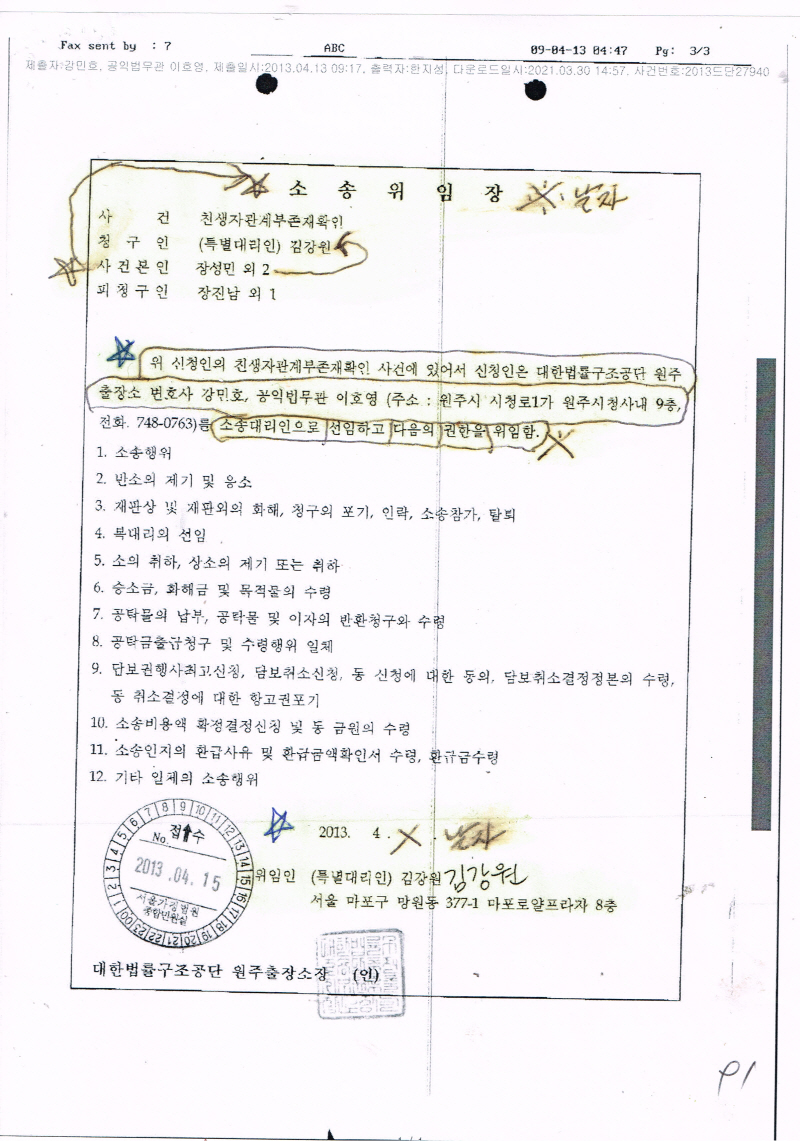 Fax sent by : 7 ABC 09-04-13 04:47 Pg: 3/3
제출자:강민호, 공익법무관 이호영, 제출일시:2013.04.13 09:17, 출력자:한지성, 다운로드일시:2021.03.30 14:57, 사건번호:2013드단27940
소 송 위 임 장 날자
사 건 친생자관계부존재확인
청 구 인 (특별대리인) 김강원
사건본인 장성민 외 2
피청구인 장진남 외 1
위 신청인의 친생자관계부존재확인 사건에 있어서 신청인은 대한법률구조공단 원주
출장소 변호사 강민호, 공익법무관 이호영 (주소 : 원주시 시청로1가 원주시청사내 9층,
전화. 748-0763)를 소송대리인으로 선임하고 다음의 권한을 위임함.
1. 소송행위
2. 반소의 제기 및 응소
3. 재판상 및 재판외의 화해, 청구의 포기, 인락, 소송참가, 탈퇴
4. 복대리의 선임
5. 소의 취하, 상소의 제기 또는 취하
6. 승소금, 화해금 및 목적물의 수령
7. 공탁물의 납부, 공탁물 및 이자의 반환청구와 수령
8. 공탁금출급청구 및 수령행위 일체
9. 담보권행사최고신청, 담보취소신청, 동 신청에 대한 동의, 담보취소결정정본의 수령,
동 취소결정에 대한 항고권포기
10. 소송비용액 확정결정신청 및 동 금원의 수령
11. 소송인지의 환급사유 및 환급금액확인서 수령, 환급금수령
12. 기타 일체의 소송행위
2013. 4. 날자
No. 접수
2013.04.15
서울가정법원
종합민원실
위임인 (특별대리인) 김강원 김강원
서울 마포구 망원동 377-1 마포로얄프라자 8층
대한법률구조공단 원주출장소장 (인)
P1